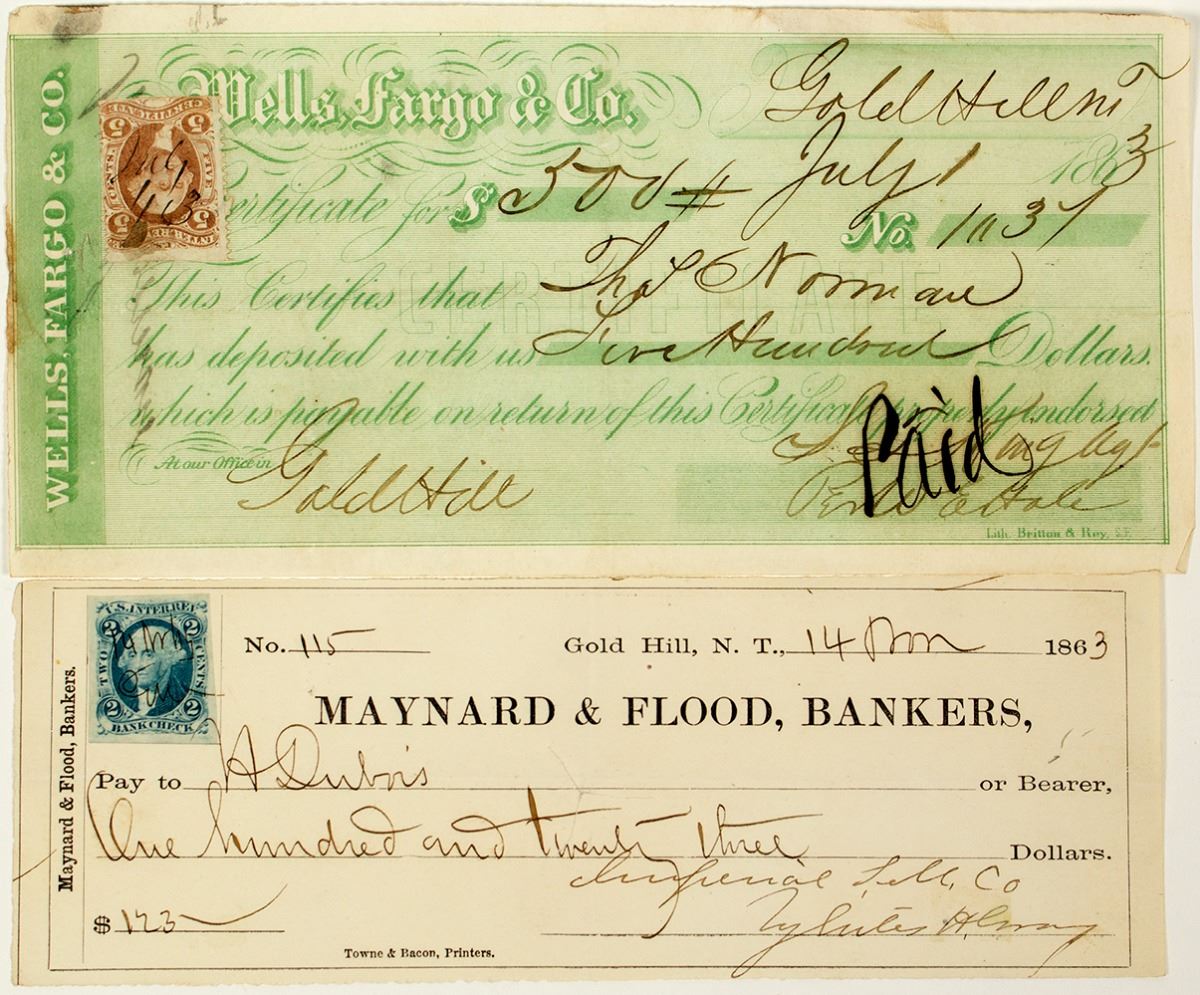 WELLS, FARGO & CO.
Wells, Fargo & Co.
Gold Hill NT
July 1 1863
Certificate for $ 500
No. 1137
This Certifies that Thos Norman
has deposited with us Five Hundred Dollars.
which is payable on return of this Certificate properly endorsed
At our Office in Gold Hill
Agt
Paid
Lith. Britton & Rey, S.F.
FIVE CENTS
5 5
5 5
July 1
63
Maynard & Flood, Bankers.
U.S. INTER. REV.
2 2
TWO CENTS
2 2
BANK CHECK
No. 115 Gold Hill, N. T., 14 Nov 1863
MAYNARD & FLOOD, BANKERS,
Pay to H Dubois or Bearer,
One hundred and twenty three Dollars.
Imperial S. M. Co
$ 123
Towne & Bacon, Printers.